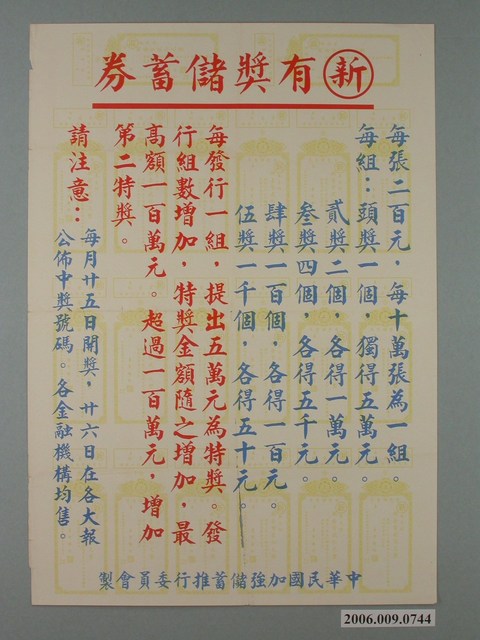 新有獎儲蓄券
每張二百元，每十萬張為一組。
每組：頭獎一個，獨得五萬元。
貳獎二個，各得一萬元。
叁獎四個，各得五千元。
肆獎一百個，各得一百元。
伍獎一千個，各得五十元。
每發行一組，提出五萬元為特獎。發
行組數增加，特獎金額隨之增加，最
高額一百萬元。超過一百萬元，增加
第二特獎。
請注意：
每月廿五日開獎，廿六日在各大報
公佈中獎號碼。各金融機構均售。
中華民國加強儲蓄推行委員會製
2006.009.0744